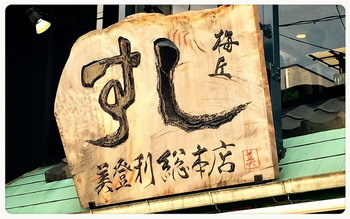 梅丘
すし
美登利総本店